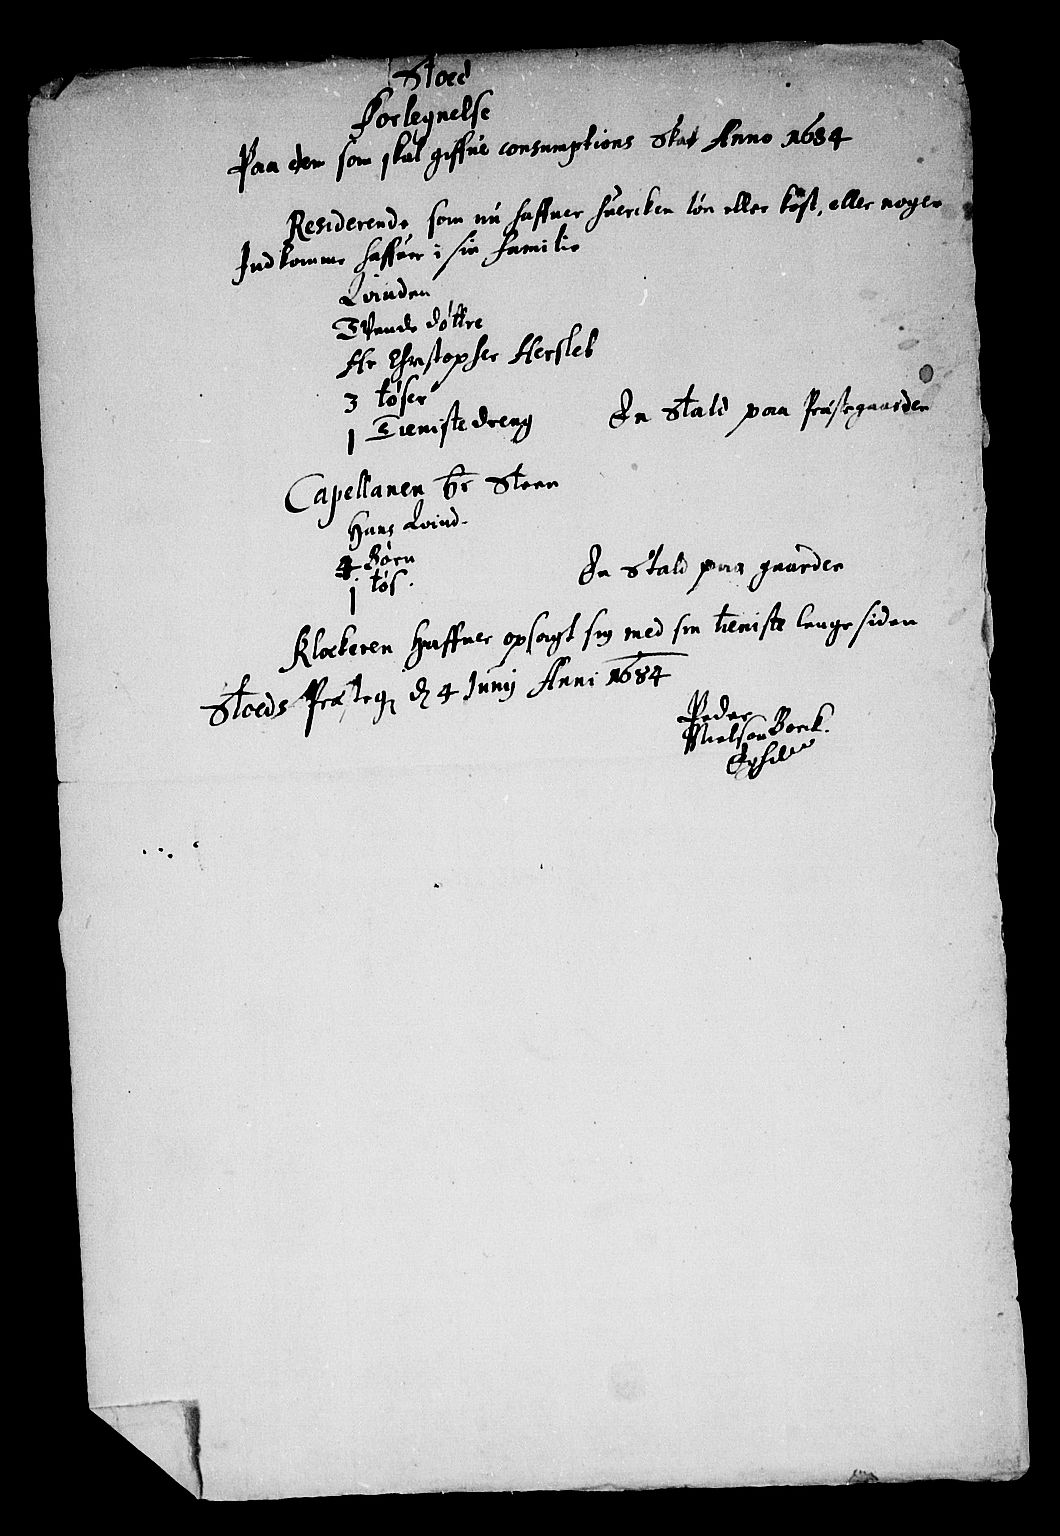 Stoed
Forlegnelse
Paa dem som skal giffue consumptions Skat Anno 1684
Residerende som nu haffuer huercken løn eller kost, eller nogen
Indkomme haffuer i sin familie
Qvinden
Tvende døttre
Hr Christopher Hersleb
3 tøser
1 Tieniste dreng En Stald paa Præstegaarden
Capellanen Hr Steen
Hans Qvind
4 Børn
1 tøs. En Stald paa gaarden
Klockeren Haffuer opsagt sig med sin tieniste lenge siden
Stoeds Præsteg d 4 Junij Anni 1684
Peder
Nielsen Borck.